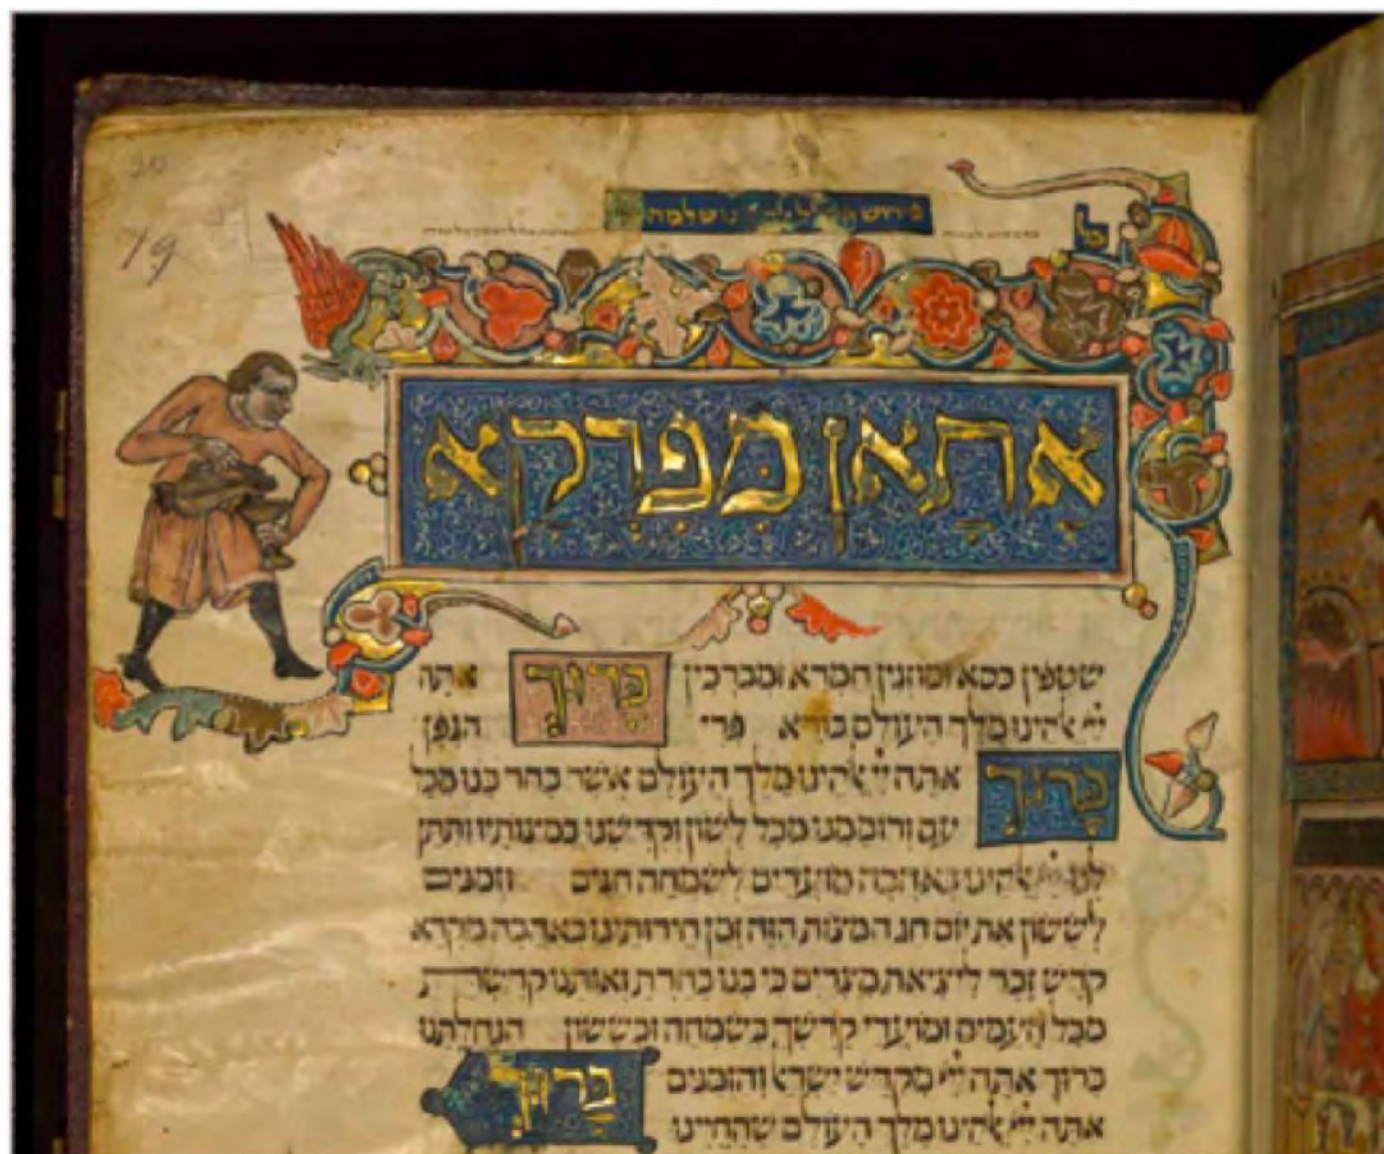 20
19
כל
אֲתָאן מִפִּרְקָא
שטפין כסא ומוזגין חמרא ומברכין בָּרוּךְ אתה
ייי אלהינו מלך העולם בורא פרי הגפן
בָּרוּךְ אתה ייי אלהינו מלך העולם אשר בחר בנו מכל
עם ורוממנו מכל לשון וקדשנו במצותיו ותתן
לנו ייי אלהינו באהבה מועדים לשמחה חגים וזמנים
לששון את יום חג המצות הזה זמן חירותינו באהבה מקרא
קדש זכר ליציאת מצרים כי בנו בחרת ואותנו קדשת
מכל העמים ומועדי קדשך בשמחה ובששון הנחלתנו
ברוך אתה ייי מקדש ישראל והזמנים בָּרוּךְ
אתה ייי אלהינו מלך העולם שהחיינו